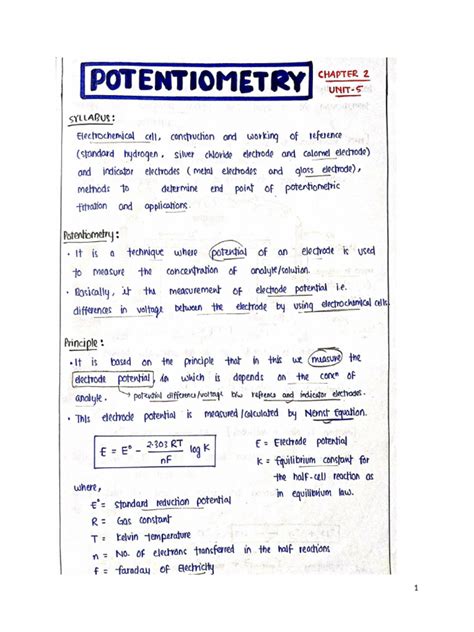 POTENTIOMETRY
CHAPTER 2
UNIT-5
SYLLABUS:
Electrochemical cell, construction and working of reference
(standard hydrogen, silver chloride electrode and calomel electrode)
and indicator electrodes (metal electrodes and glass electrode),
methods to determine end point of potentiometric
titration and applications.
Potentiometry:
• It is a technique where potential of an electrode is used
to measure the concentration of analyte/solution.
• Basically, it the measurement of electrode potential i.e.
differences in voltage between the electrode by using electrochemical cell.
Principle:
• It is based on the principle that in this we measure the
electrode potential, in which is depends on the concn of
analyte. → potential difference/voltage b/w reference and indicator electrodes.
• This electrode potential is measured/calculated by Nernst Equation.
E = E° - 2.303 RT / nF log K
E = Electrode potential
K = Equilibrium constant for
the half-cell reaction as
in equilibrium law.
where,
E° = standard reduction potential
R = Gas constant
T = Kelvin temperature
n = No. of electrons transferred in the half reactions
f = faraday of Electricity
1